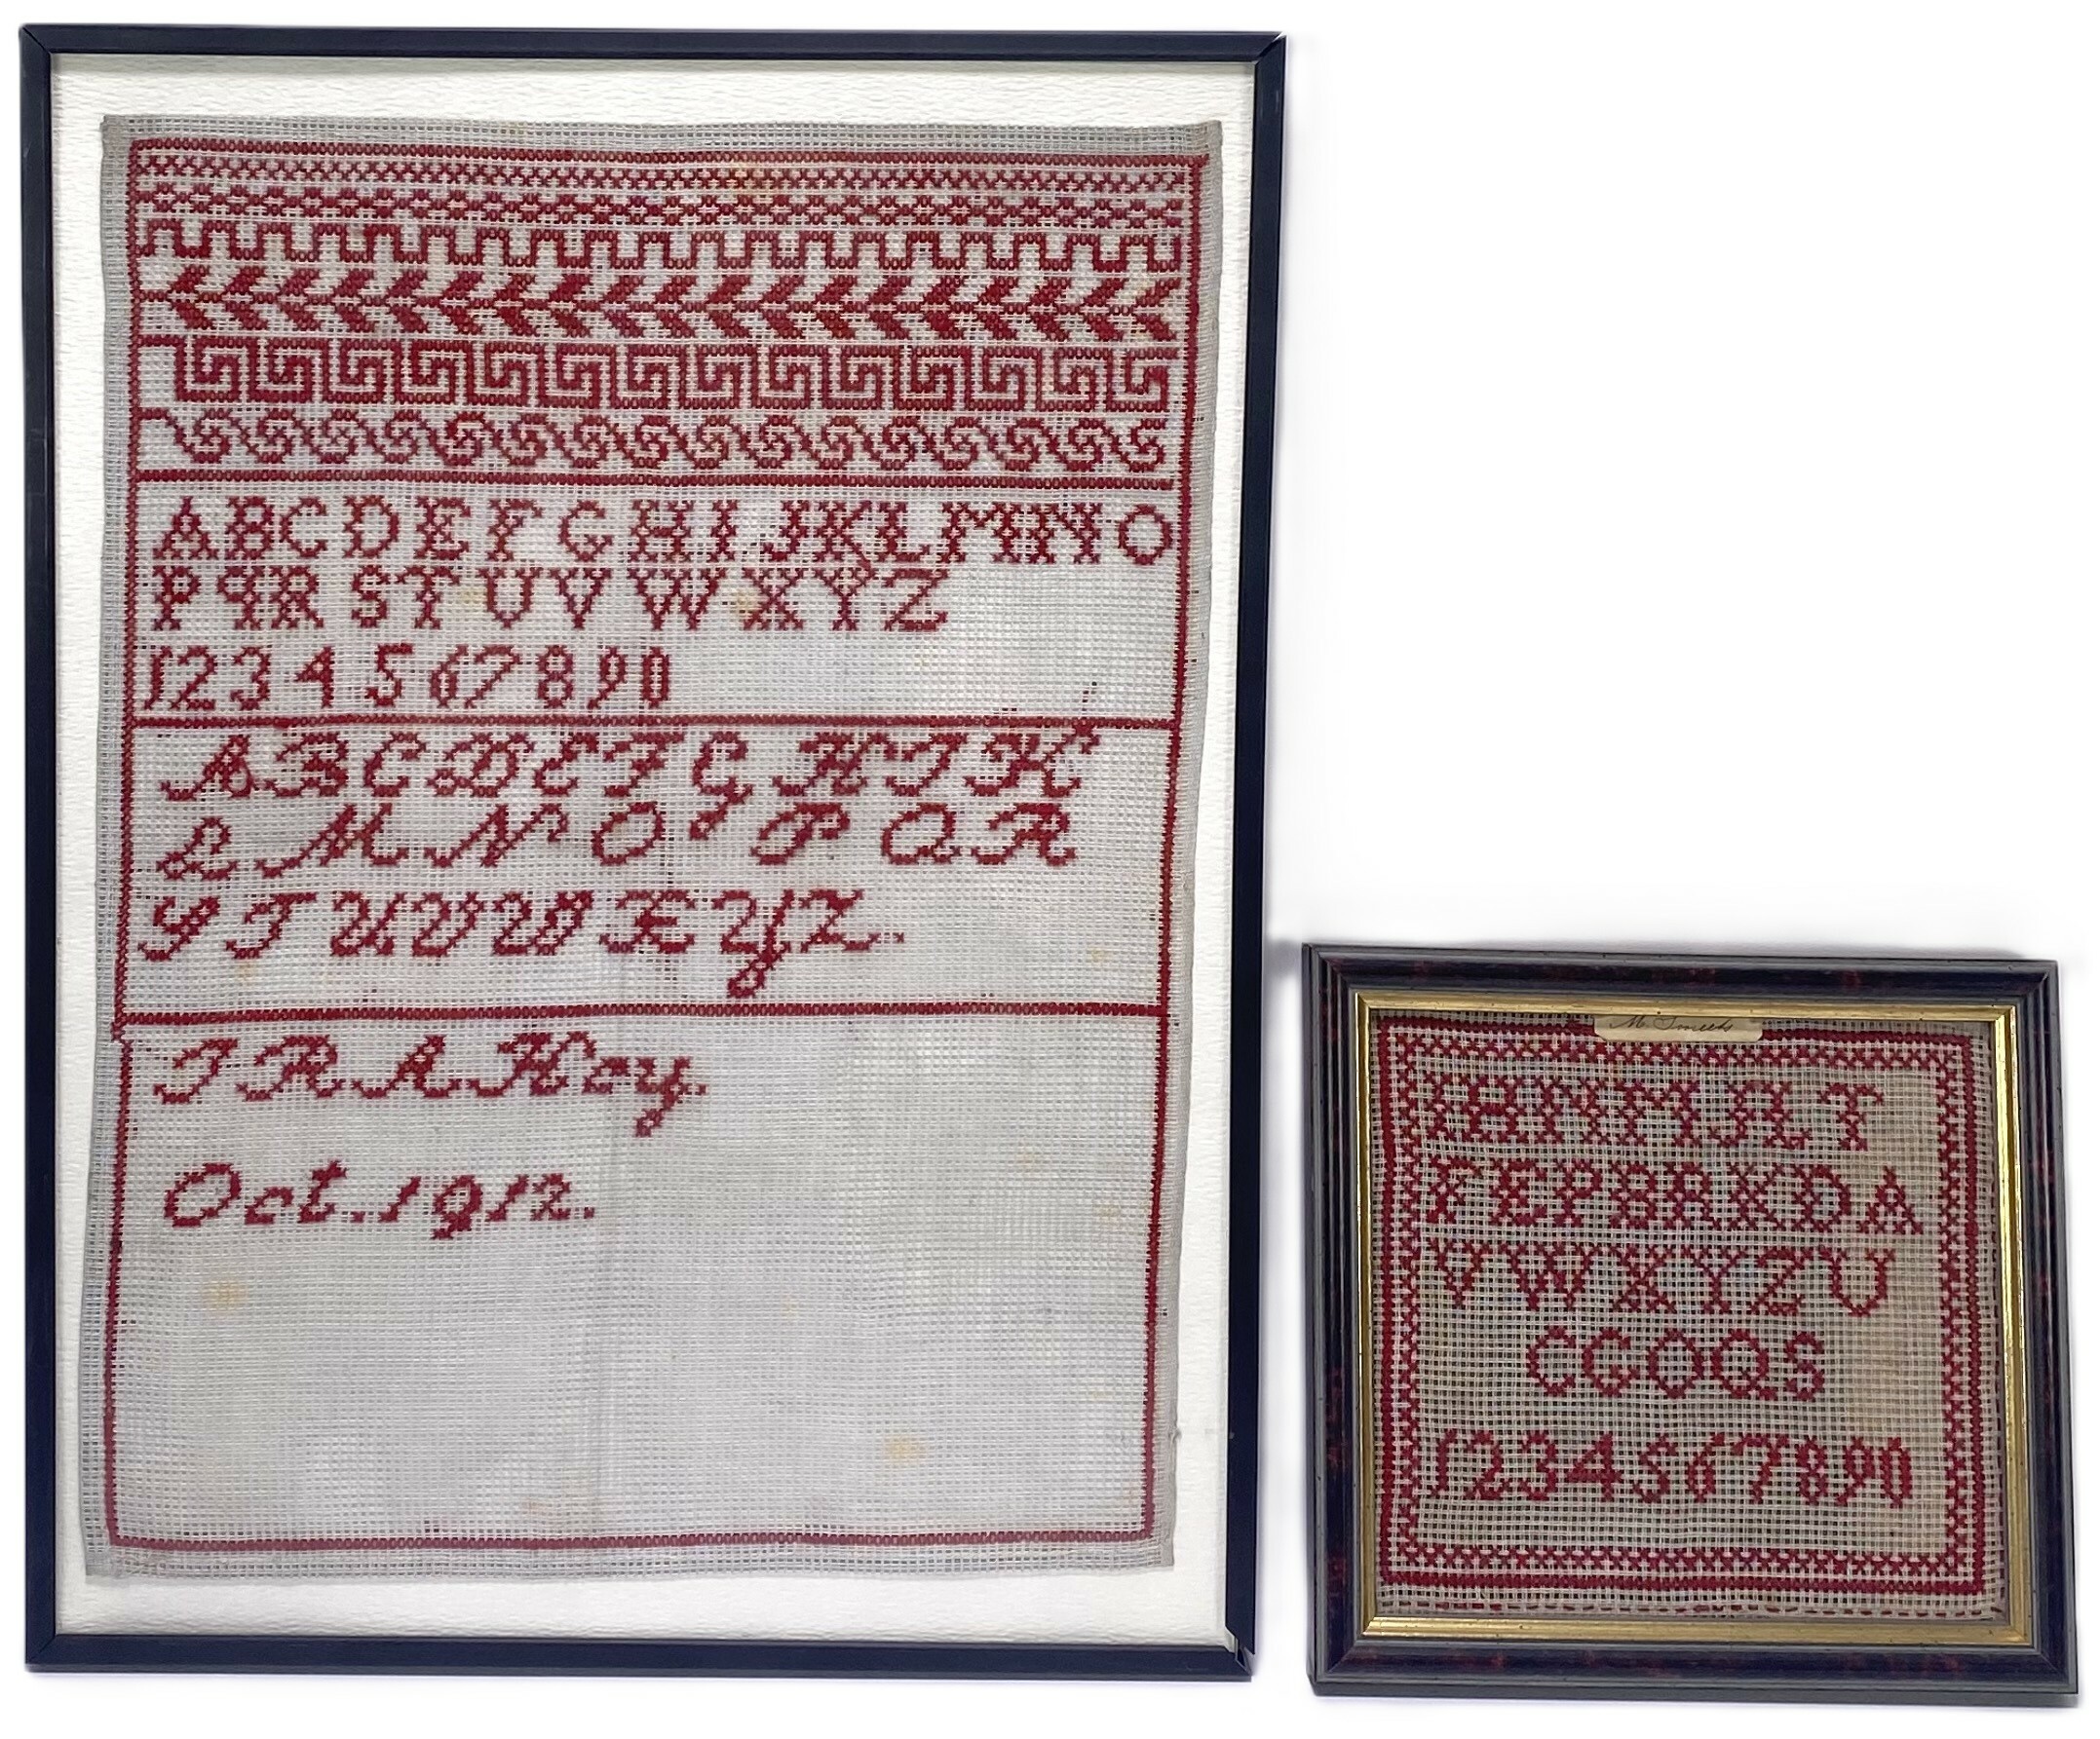 ABCDEFGHIJKLMNO
PqRSTUVWXYZ
1234567890
ABCDEFGHIK
LMNOPQR
STUVWXYZ.
I R A Hoy.
Oct. 1912.
M
IHNMJLT
FEPBRKDA
VWXYZU
CGOQS
1234567890